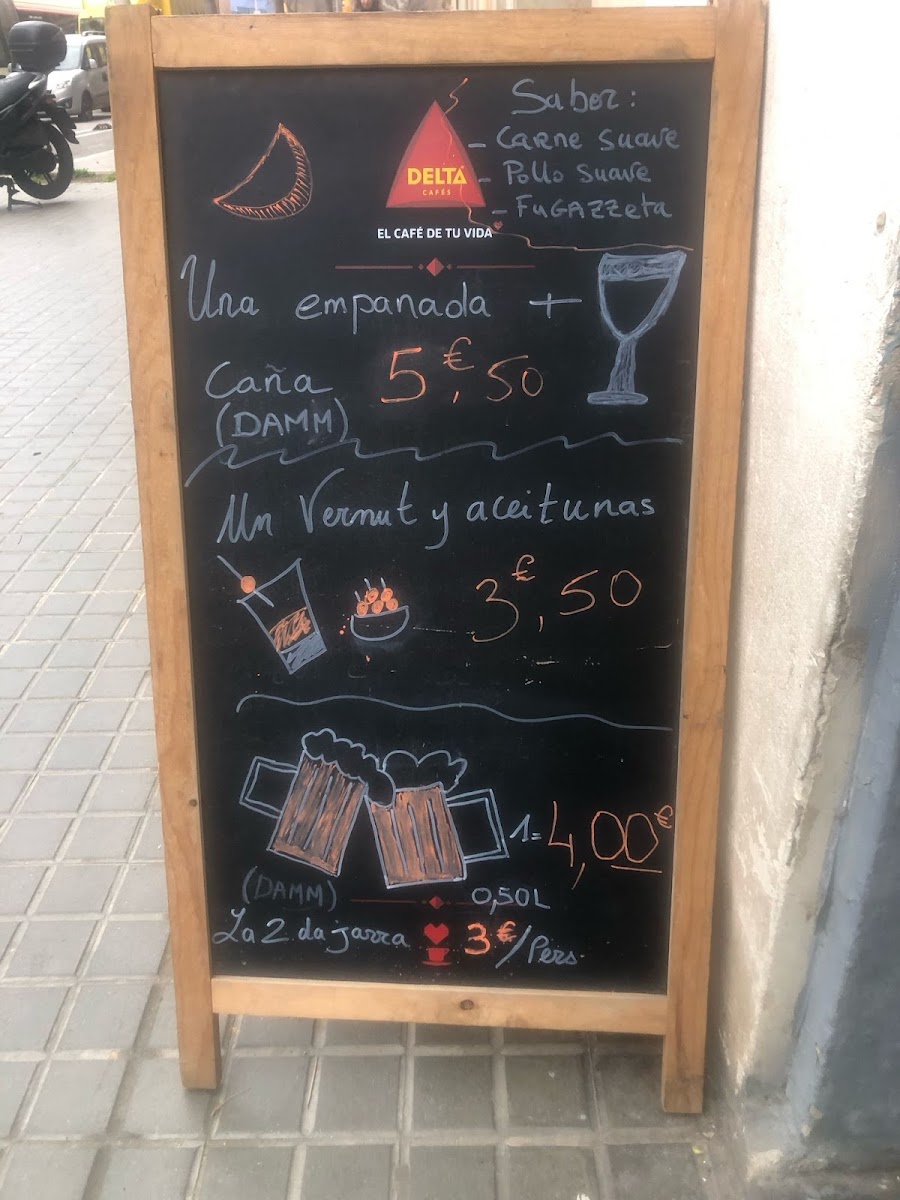 Sabor:
- Carne suave
- Pollo suave
- Fugazzeta
DELTA
CAFÉS
EL CAFÉ DE TU VIDA
Una empanada +
Caña 5€,50
(DAMM)
Un Vernut y aceitunas
3€,50
1= 4,00€
(DAMM) 0,50L
La 2 da jarra 3€/Pers